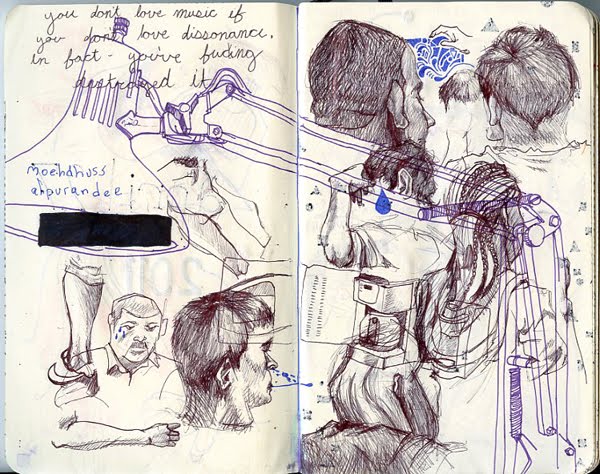 you don't love music if
you don't love dissonance.
in fact - you've fucking
destroyed it
moehdhuss
arpurandee